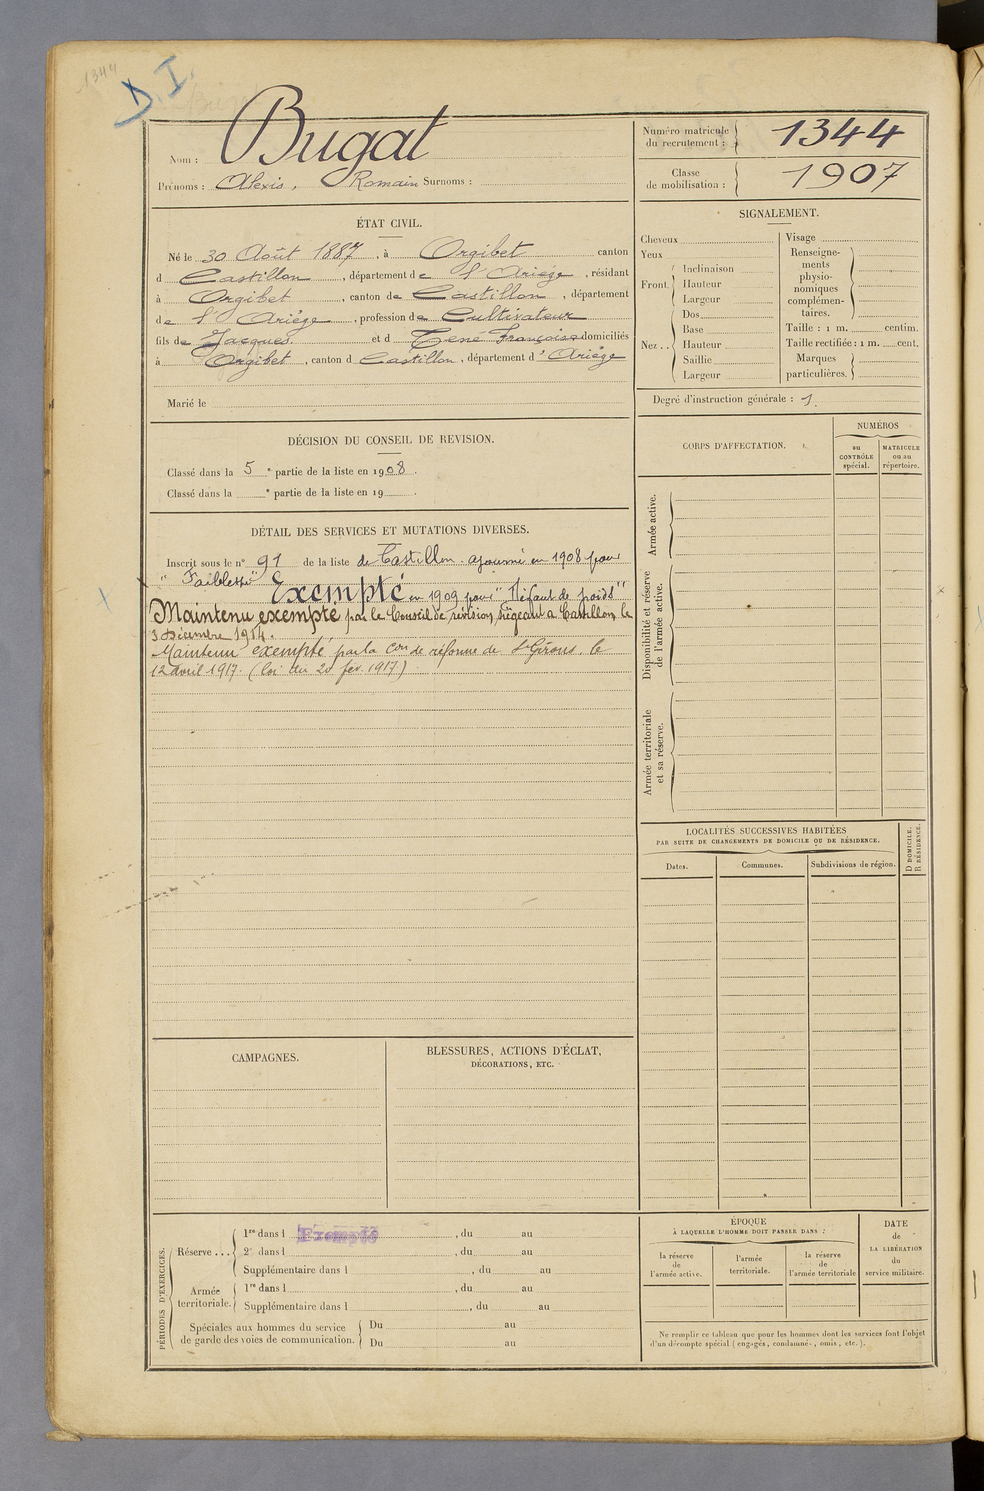 1344
D.I.
Nom : Bugat
Prénoms : Alexis, Romain Surnoms :
Numéro matricule du recrutement : 1344
Classe de mobilisation : 1907
ÉTAT CIVIL.
Né le 30 Août 1887, à Orgibet canton
d Castillon, département de l'Ariège, résidant
à Orgibet, canton de Castillon, département
de l'Ariège, profession de Cultivateur
fils de Jacques et d Françoise domiciliés
à Orgibet, canton d Castillon, département d'Ariège
Marié le
SIGNALEMENT.
Cheveux
Yeux
Front. Inclinaison
Hauteur
Largeur
Nez.. Dos
Base
Hauteur
Saillie
Largeur
Visage
Renseigne-
ments
physio-
nomiques
complémen-
taires.
Taille : 1 m. centim.
Taille rectifiée : 1 m. cent.
Marques
particulières.
Degré d'instruction générale : 1.
DÉCISION DU CONSEIL DE REVISION.
Classé dans la 5e partie de la liste en 1908.
Classé dans la e partie de la liste en 19 .
DÉTAIL DES SERVICES ET MUTATIONS DIVERSES.
Inscrit sous le n° 91 de la liste de Castillon. ajourné en 1908 pour
"Faiblesse" Exempté en 1909 pour "Défaut de poids"
Maintenu exempté par le Conseil de révision, siégeant à Castillon le
3 Décembre 1914.
Maintenu exempté par la Con de réforme de St Girons, le
12 avril 1917. (loi du 20 fev. 1917)
CORPS D'AFFECTATION.
NUMÉROS
au CONTRÔLE spécial.
MATRICULE ou au répertoire.
Armée active.
Disponibilité et réserve de l'armée active.
Armée territoriale et sa réserve.
LOCALITÉS SUCCESSIVES HABITÉES
PAR SUITE DE CHANGEMENTS DE DOMICILE OU DE RÉSIDENCE.
Dates.
Communes.
Subdivisions de région.
D DOMICILE.
R RÉSIDENCE.
CAMPAGNES.
BLESSURES, ACTIONS D'ÉCLAT,
DÉCORATIONS, ETC.
PÉRIODES D'EXERCICES.
Réserve ... 1re dans l Exempté, du au
2e dans l , du au
Supplémentaire dans l , du au
Armée territoriale. 1re dans l , du au
Supplémentaire dans l , du au
Spéciales aux hommes du service
de garde des voies de communication.
Du au
Du au
ÉPOQUE
À LAQUELLE L'HOMME DOIT PASSER DANS :
la réserve de l'armée active.
l'armée territoriale.
la réserve de l'armée territoriale
DATE
de
LA LIBÉRATION
du
service militaire.
Ne remplir ce tableau que pour les hommes dont les services font l'objet
d'un décompte spécial (engagés, condamnés, omis, etc.).